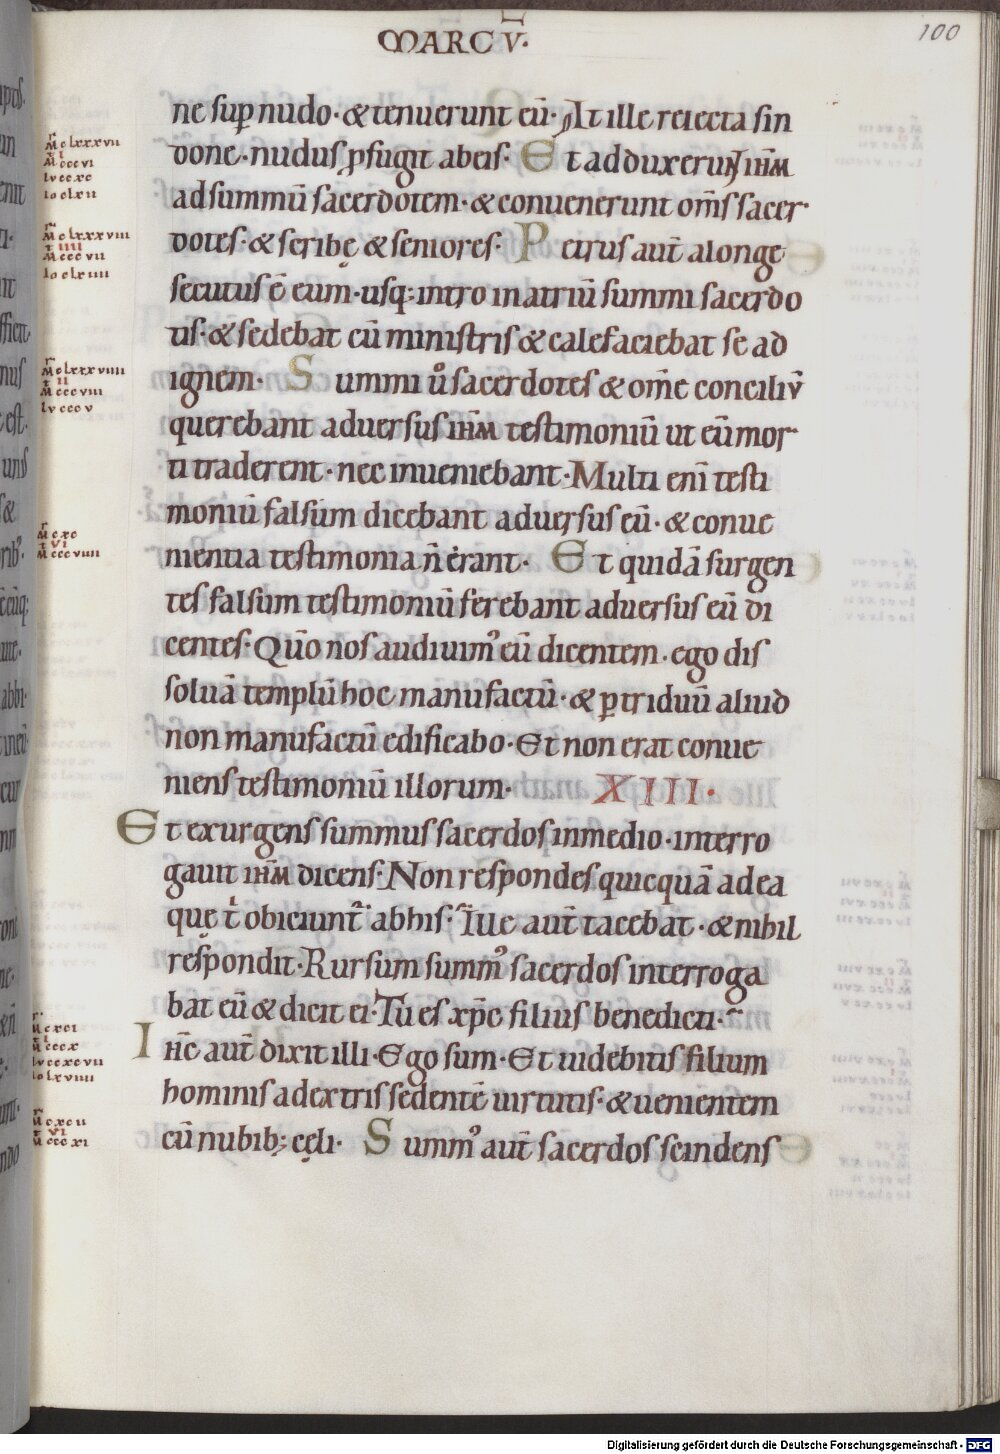 MARCV̄·
100
ne sup̱ nudo· & tenuerunt eū· At ille reiecta sin
done· nudus ꝓfugit ab eis· Et adduxerunt ihm̄
ad summū sacerdotem· & conuenerunt om̄s sacer
dotes· & scribę & seniores· Petrus aut̄ a longe
secutus ē eum· usq; intro in atriū summi sacerdo
tis· & sedebat cū ministris & calefaciebat se ad
ignem· Summi ů sacerdotes & om̄e conciliv̄
querebant aduersus ihm̄ testimoniū ut eū mor
ti traderent· nec inueniebant· Multi eni̅ testi
moniū falsum dicebant aduersus eū· & conue
nientia testimonia n̄ erant· Et quidā surgen
tes falsum testimoniū ferebant aduersus eū di
centes· Qūo nos audiuim᾽ eū dicentem· ego dis
soluā templū hoc manufactū· & ꝑ triduū aliud
non manufactū edificabo· Et non erat conue
niens testimoniū illorum· XIII·
Et exurgens summus sacerdos in medio· interro
gauit ihm̄ dicens· Non respondes quicquā ad ea
quę t̄ obiciunt̄ ab his· Ille aut̄ tacebat· & nihil
respondit· Rursum summ᾽ sacerdos interroga
bat eū & dicit ei· Tu es xp̄c filius benedicti·
Ihc̄ aut̄ dixit illi· Ego sum· Et uidebitis filium
hominis a dextris sedentē uirtutis· & uenientem
cū nubib; cęli· Summ᾽ aut̄ sacerdos scindens
M̄ clxxxvii
M̄ cccvi
lv ccxc
io clxii
M̄ clxxxviii
IIII
M̄ cccvii
io clxiiii
M̄ clxxxviiii
II
M̄ cccviii
lv cccv
M̄ cxc
VI
M̄ cccviiii
M̄ cxci
I
M̄ cccx
lv ccxcvii
io lxviiii
M̄ cxcii
VI
M̄ cccxi
Digitalisierung gefördert durch die Deutsche Forschungsgemeinschaft - DFG